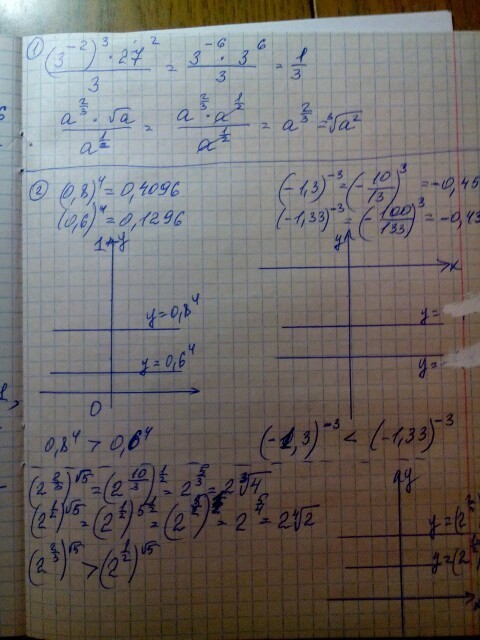 ① ((3⁻²)³ · 27²)/3 = (3⁻⁶ · 3⁶)/3 = 1/3
(a^(2/3) · √a)/a^(1/2) = (a^(2/3) · a^(1/2))/a^(1/2) = a^(2/3) = ³√a²
② (0,8)⁴ = 0,4096
(0,6)⁴ = 0,1296
(-1,3)⁻³ = (-10/13)³ = -0,45
(-1,33)⁻³ = (-100/133)³ = -0,43
1 y
y = 0,8⁴
y = 0,6⁴
0
y
x
y =
y =
0,8⁴ > 0,6⁴
(-1,3)⁻³ < (-1,33)⁻³
(2^(2/3))^√5 = (2^(10/3))^(1/2) = 2^(5/3) = 2³√4
(2^(1/2))^√5 = 2^(5/4) = 2⁴√2
(2^(2/3))^√5 > (2^(1/2))^√5
y
y = (2
y = (2